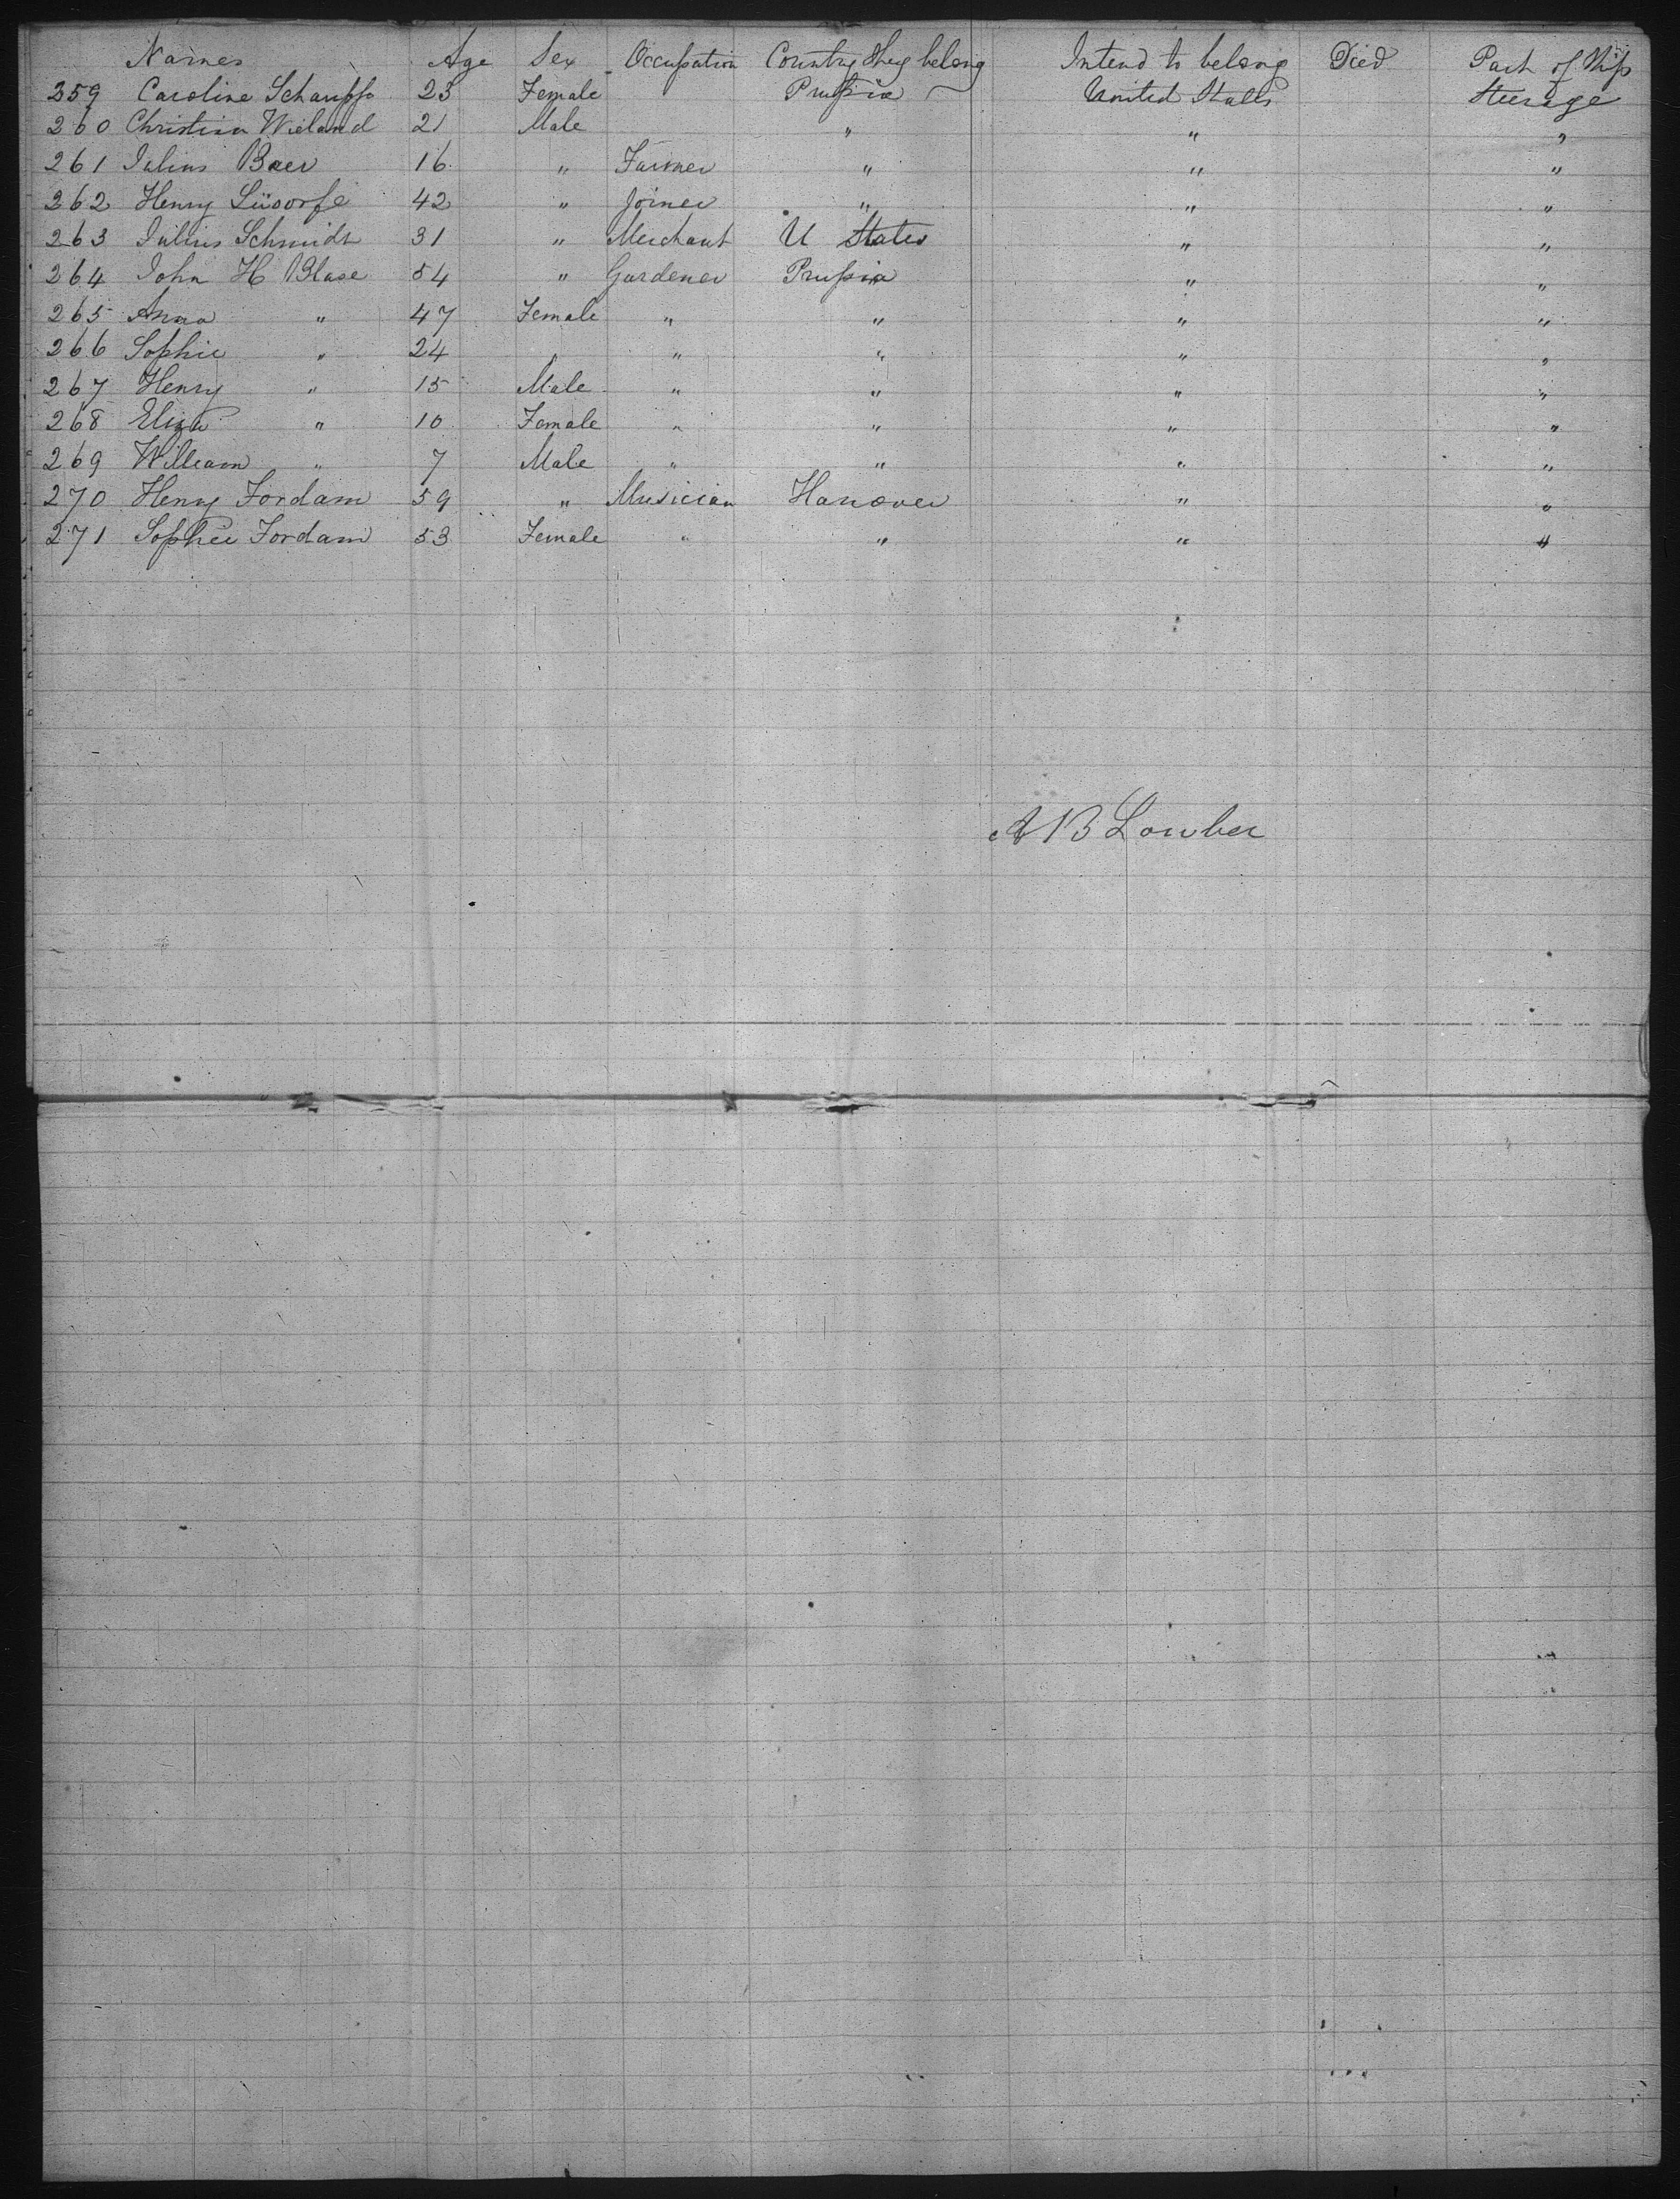 Names Age Sex Occupation Country they belong Intend to belong Died Part of Ship
259 Caroline 23 Female Prussia United States Steerage
260 Christian Wieland 21 Male " " "
261 Julius Baer 16 " Farmer " " "
262 Henry 42 " Joiner " " "
263 Julius Schmidt 31 " Merchant U States " "
264 John H Blase 54 " Gardener Prussia " "
265 Anna " 47 Female " " " "
266 Sophie " 24 " " " " "
267 Henry " 15 Male " " " "
268 Eliza " 10 Female " " " "
269 William " 7 Male " " " "
270 Henry Fordam 59 " Musician Hanover " "
271 Sophie Fordam 53 Female " " " "
A B Lowber